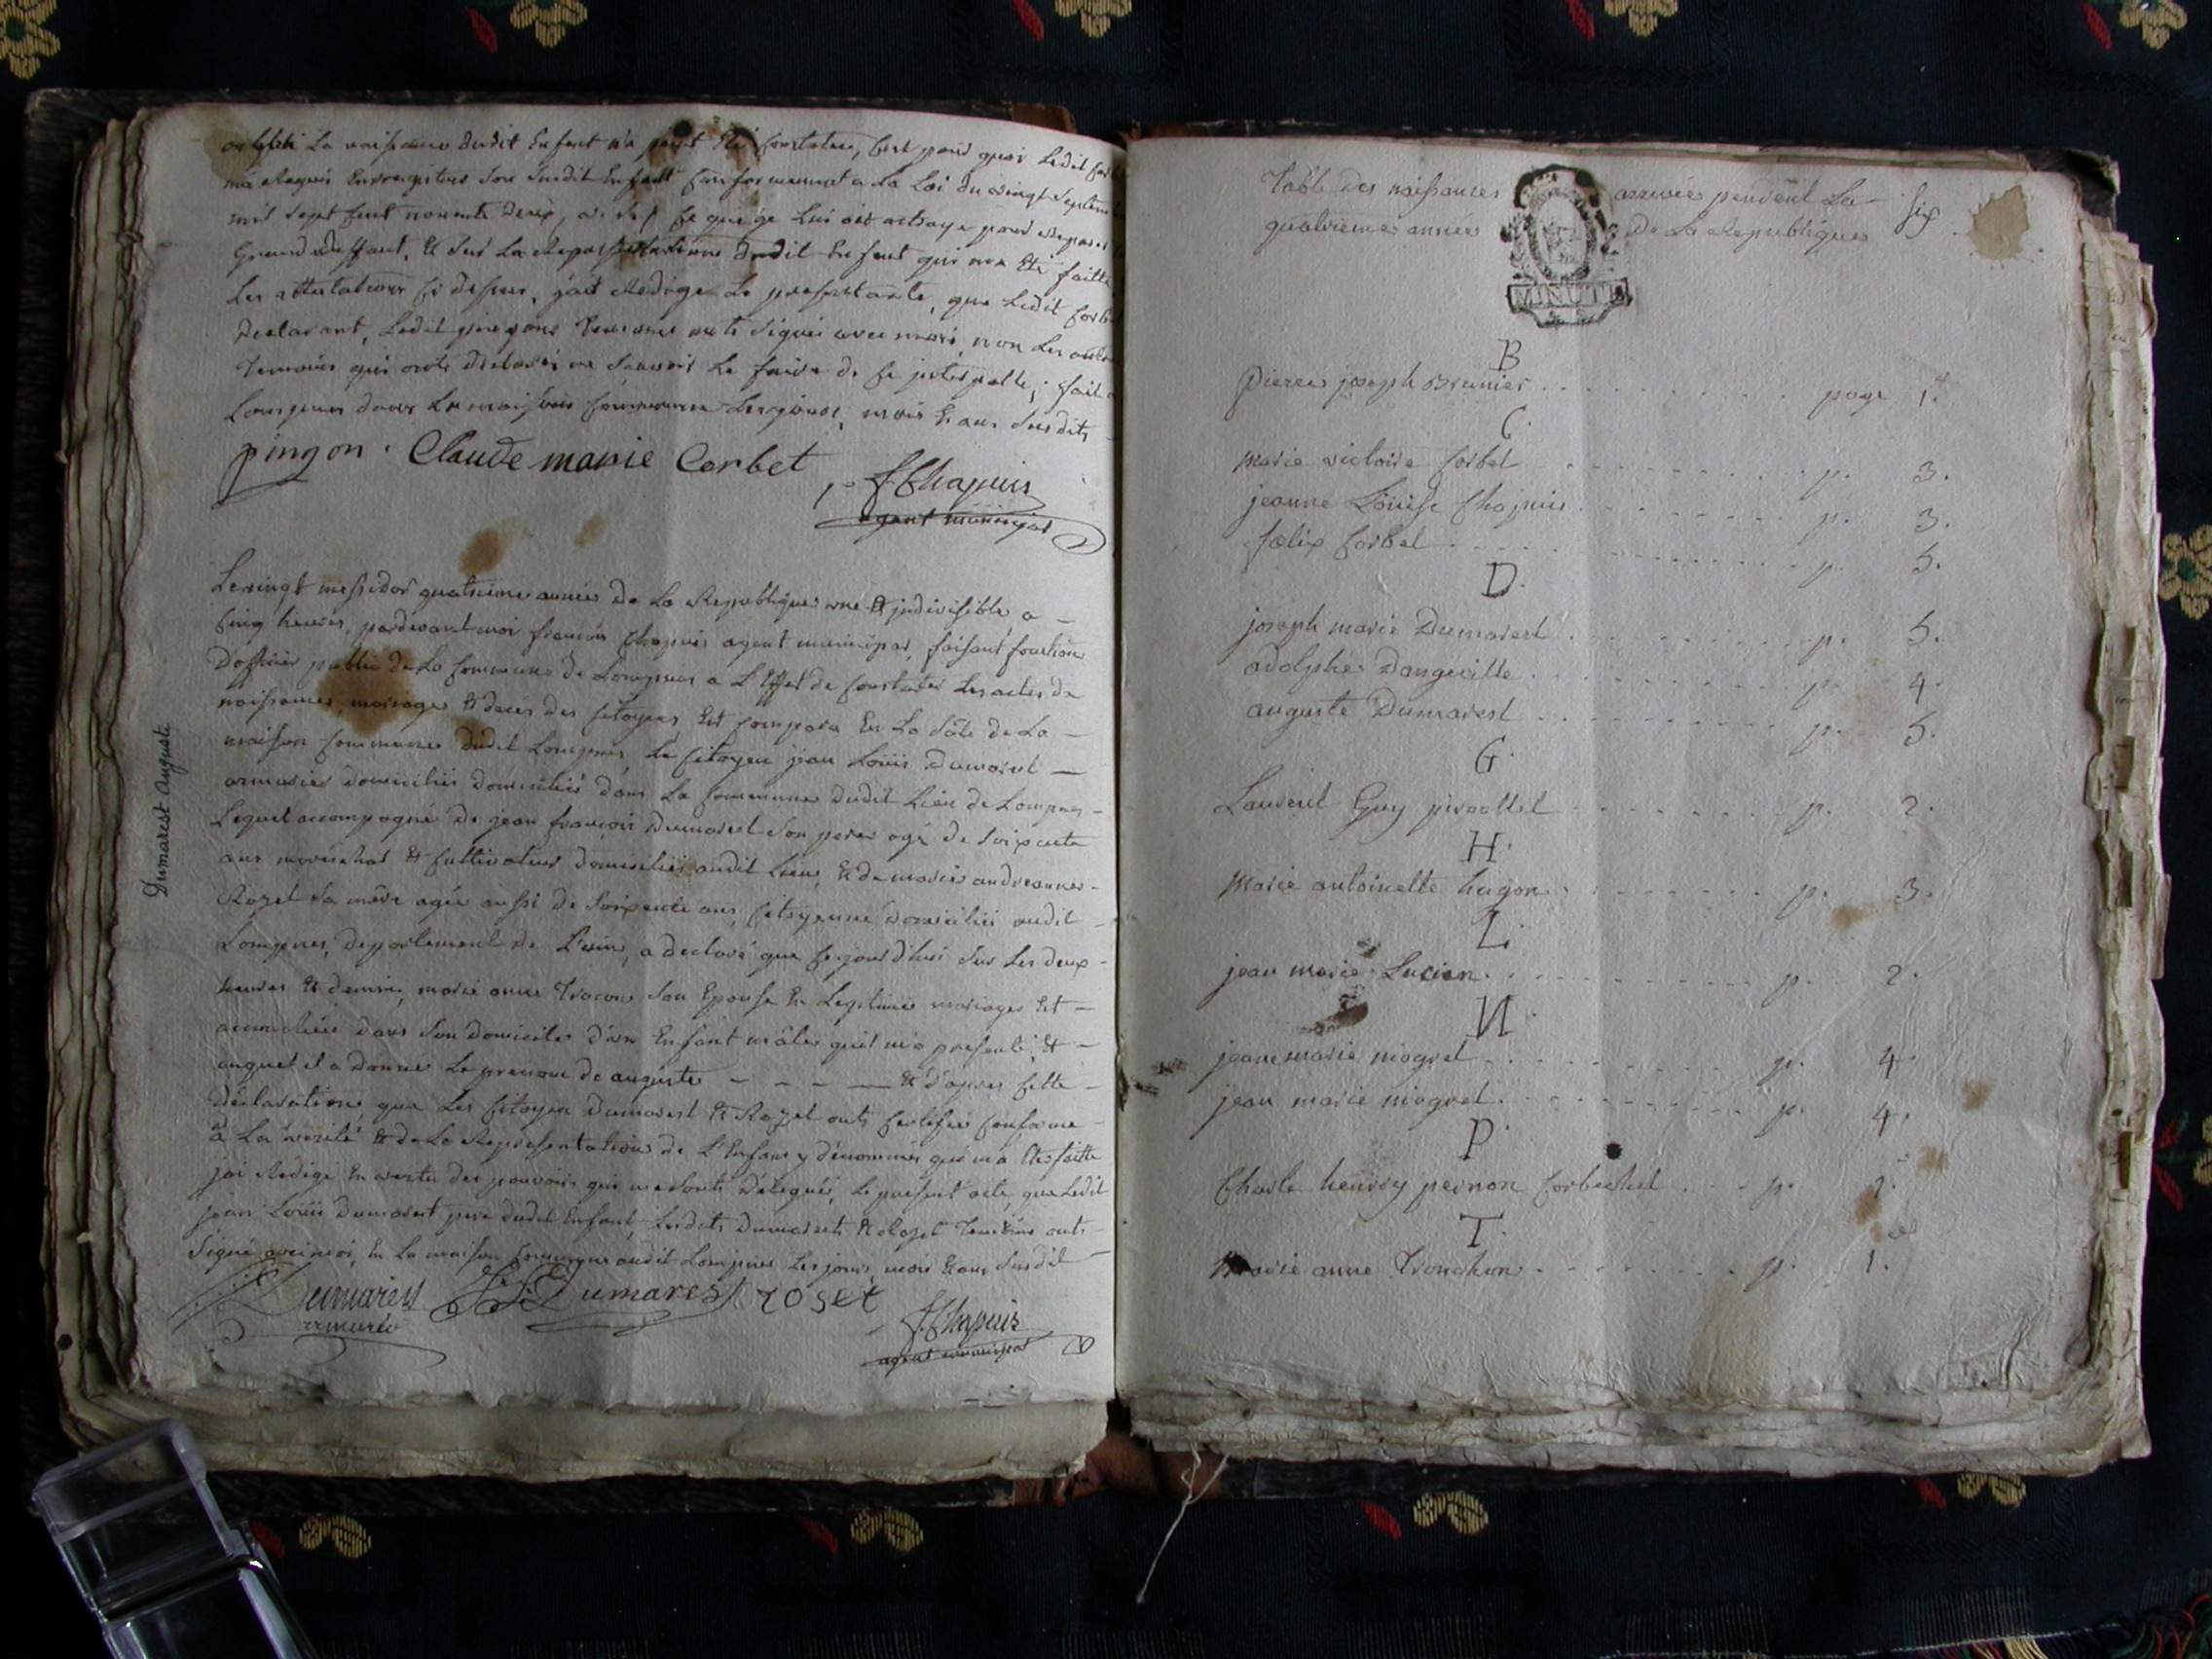 oublié la naissance dudit Enfant n'a point été Constatée, C'est pour quoi Ledit
ma requis Enregistrer son susdit Enfant Conformement a La Loi du vingt septem
mil sept Cent nonente deux, ce que je Lui ait octroyé pour
et sur La Representation dudit Enfant qui m'a Eté faitte
Les attestations Ci dessus, j'ait Redigé Le presentacte, que Ledit Corb
declarant, Ledit pingon onts signés avec moi, non Les autres
Temoins qui onts declarés ne savoir Le faire de Ce interpellé; fait a
Lompnes dans La maison Commune Les jour, mois Et ans susdits
pingon. Claude marie Corbet
f. Chapuis
agent municipal
Dumarest Auguste
Le vingt messidor quatrieme année de La Republique une Et indivisible, a
Cinq heures, pardevant moi françois Chapuis agent municipal, faisant fonction
D'officier public de La Commune de Lompnes a L'Effet de Constater Les actes de
naissances, mariages Et deces des Citoyens, Est Comparu En La sale de La
maison Commune dudit Lompnes, Le Citoyen jean Loüis Dumarest
armurier domiciliés domicilié dans La Commune dudit Lieu de Lompnes
Lequel accompagné de jean françois Dumarest son pere agé de soixante
ans maréchal Et Cultivateur domicilié audit Lieu, Et de marie andreanne
Rozet sa mère agée aussi de soixante ans, Citoyenne domicilié audit
Lompnes, departement de L'ain, a declaré que Ce jourd'hui sur Les deux
heures Et demie, marie anne Tracon son Epouse En Legitime mariage Est
accouchée dans son domicile d'un Enfant mâle qu'il m'a presenté, Et
auquel il a donné Le prenom de auguste Et d'apres Cette
déclaration, que Les Citoyen Dumarest Et Rozet onts Certifié Conforme
à La verité Et de La Representation de L'Enfant y dénommés qui m'a Eté faitte
j'ai Redigé En vertu des pouvoirs qui me sonts délegués, Le present acte, que Ledit
jean Loüis Dumarest pere dudit Enfant, Lesdits Dumarest Et Rozet Temoins onts
signé avec moi, En La maison Commune audit Lompnes Les jour, mois Et ans susdit
Dumarest J. F. Dumarest roset
armurié
f. Chapuis
agent municipal
Table des naissances arrivées pendent La six
quatrieme année De La Republique
MINUTE
B
pierre joseph Brunier page 1.
C.
marie victoire Corbet p. 3.
jeanne Loüise Chapuis p. 3.
fœlix Corbet p. 5.
D.
joseph marie Dumarest p. 5.
adolphe Dangeville p. 4.
auguste Dumarest p. 5.
G.
Laurent Guy pirollet p. 2.
H.
Marie antoinette hugon p. 3.
L.
jean marie Lucien p. 2.
N.
jeane marie niogret p. 4.
jean marie niogret p. 4.
P.
Charle henrry pernon Corbechel p. 1.
T.
Marie anne Tronchon p. 1.